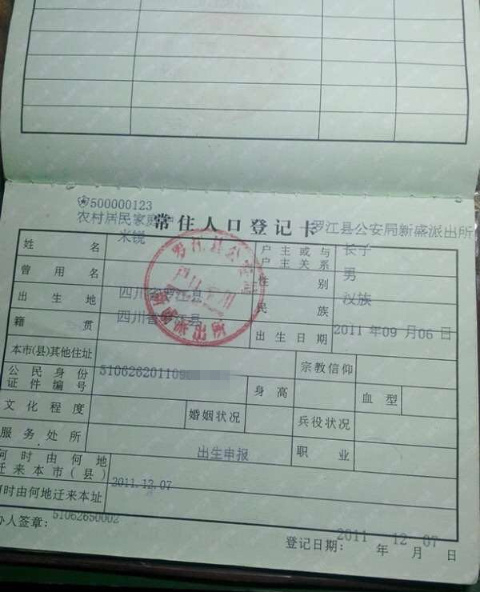 500000123
农村居民家庭户 常住人口登记卡 罗江县公安局新盛派出所
姓名 米锐 户主或与户主关系 长子
曾用名 性别 男
出生地 四川省罗江县 民族 汉族
籍贯 四川省罗江县 出生日期 2011年09月06日
本市(县)其他住址 宗教信仰
公民身份证件编号 510626201109 身高 血型
文化程度 婚姻状况 兵役状况
服务处所 职业
何时由何地迁来本市(县) 出生申报
2011.12.07
何时由何地迁来本址
办人签章: 51062650002 登记日期: 2011年12月07日